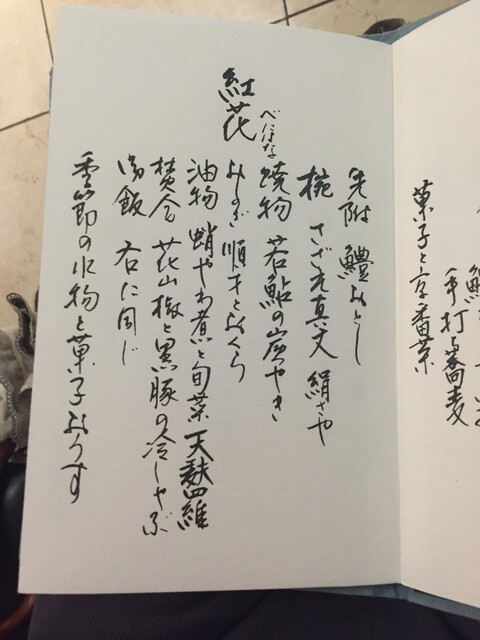 手打ち蕎麦
菓子と京番茶
紅花
べにはな
先附 鱧おとし
椀 さざえ真丈 絹さや
焼物 若鮎の炭やき
しのぎ 順才とおくら
油物 蛸やわ煮と旬菜天麩羅
焚合 花山椒と黒豚の冷しゃぶ
御飯 右に同じ
季節の水物と菓子おうす